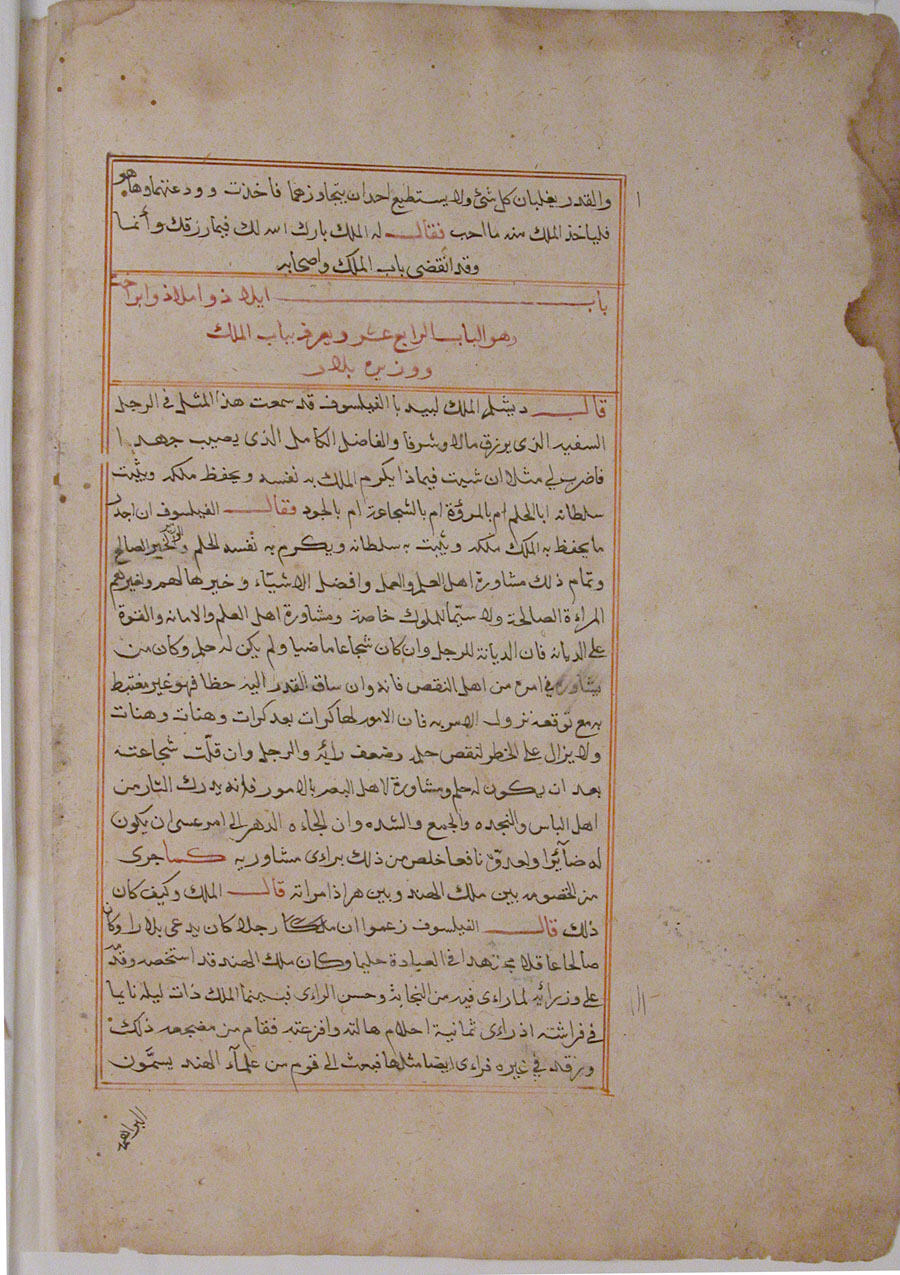 والقدر يغلبان كل شئ ولا يستطيع احد ان يتجاوزهما فاخذت وودعتهما وها هو
فلياخذ الملك منه ما احب فقال له الملك بارك الله لك فيما رزقك وأنما
وقد انقضى باب الملك واصحابه
باب ايلاذ واملاذ وابراخت
وهو الباب الرابع عشر ويعرف بباب الملك
ووزيره بلار
قال دبشلم الملك لبيدبا الفيلسوف قد سمعت هذا المثل فى الرجل
السفيه الذى يرزق مالا وشرفا والفاضل الكامل الذى يصيب جهدا
فاضرب لي مثلا ان شيت فيما ذا يكرم الملك به نفسه ويحفظ ملكه ويثبت
سلطانه ابالحلم ام بالمرؤة ام بالشجاعة ام بالجود فقال الفيلسوف ان اجدر
ما يحفظ به الملك ملكه ويثبت به سلطانه ويكرم به نفسه الحلم والخير الصالح
وتمام ذلك مشاورة اهل العلم والعمل وافضل الاشيآء وخيرها لهم ولغيرهم
المراءة الصالحة ولا سيّما للملوك خاصة ومشاورة اهل العلم والامانه والقوة
على الديانه فان الديانة للرجل وان كان شجاعا ماضيا ولم يكن له حلم وكان من
يشاوره في امره من اهل النقص فانه وان ساق القدر اليه حظا فهو غير مغتبط
به مع توقعه نزول الامر به فان الامور لها كرات بعد كرات وهنات وهنات
ولا يزال على الخطر لنقص حلمه وضعف رائه والرجل وان قلّت شجاعته
بعد ان يكون له حلم ومشاورة لاهل البصر بالامور فانه يدرك الثار من
اهل الباس والنجده والجمع والشده وان الجاءه الدهر الى امر عسى ان يكون
له ضآيّرا ولعدوّه نافعا خلص من ذلك براءى مشاوريه كما جرى
من الخصومه بين ملك الهند وبين هراذ امراته قال الملك وكيف كان
ذلك قال الفيلسوف زعموا ان ملكا رجلا كان يدعى بلارا وكان
صالحا عاقلا مجتهدا في العبادة حليما وكان ملك الهند قد استخصه وقدمه
على وزرائه لما راءى فيه من النجابة وحسن الراءى فبينما الملك ذات ليله نايما
في فراشه اذ راءى ثمانية احلام هالته وافزعته فقام من مضجعه ذلك
ورقد في غيره فراءى ايضا مثلها فبعث الى قوم من علمآء الهند يسمّون
البراهمه